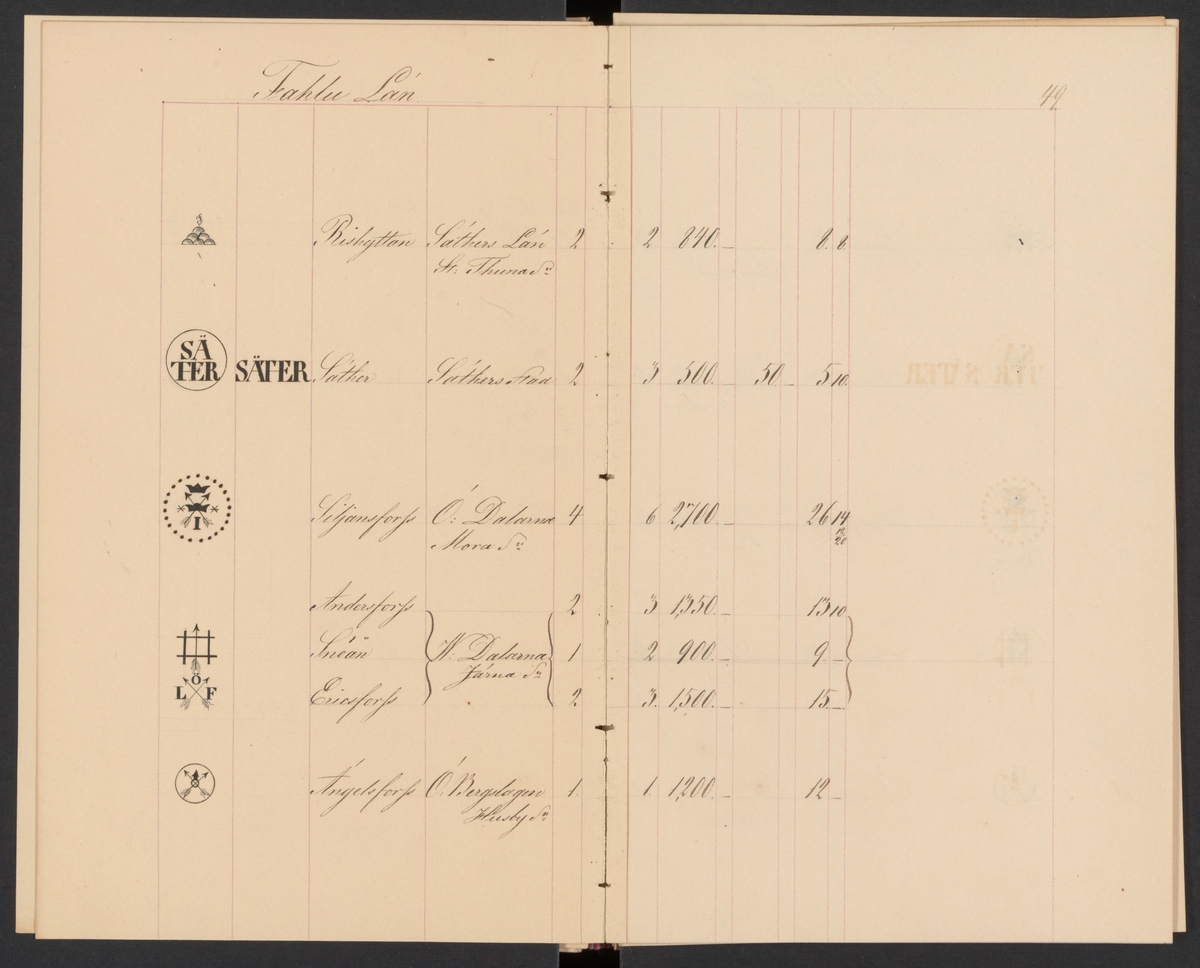 Fahlu Län 49
Bishyttan Säthers Län 2 2 840. 8. 8.
St: Thuna Sn
SÄ
TER SÄTER Säther Säthers Stad 2 3 500. 50 5 10.
I Siljansforss Ö: Dalarna 4 6 2,700. 26 14
Mora Sn 12
20
Andersforss 2 3 1,350. 13 10
Snéån W: Dalarna 1 2 900. 9
Järna Sn
L Ö F Ericsforss 2 3. 1,500. 15.
Ängelsforss Ö: Bergslagen 1. 1. 1,200. 12
Husby Sn